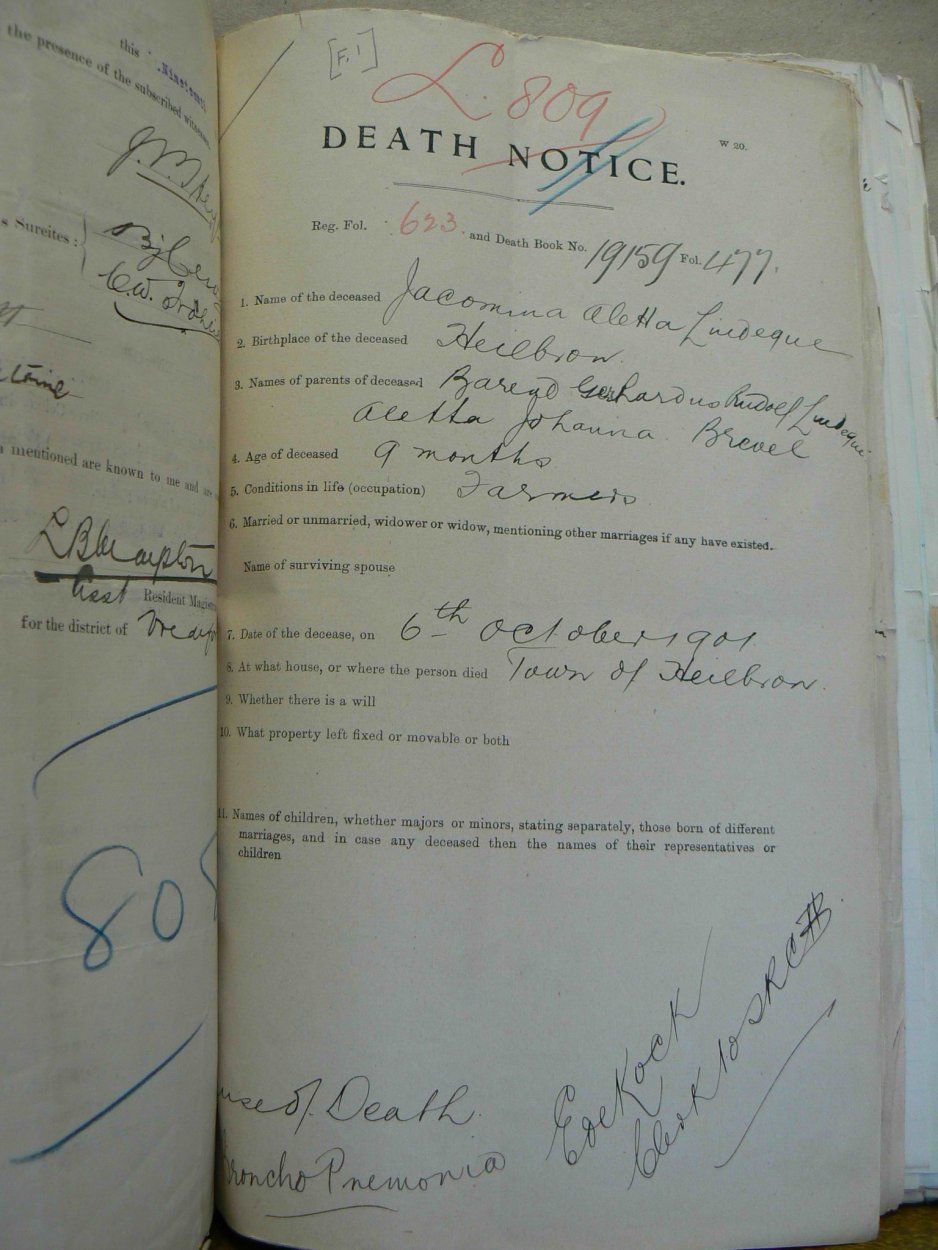 this
the presence of the subscribed
s Sureites :
mentioned are known to me and are
Resident
for the district of
80
[F. 1]
L. 809
W 20.
DEATH NOTICE.
Reg. Fol. 623. and Death Book No. 19159 Fol. 477.
1. Name of the deceased Jacomina Aletta Lindeque
2. Birthplace of the deceased Heilbron.
3. Names of parents of deceased Barend Gerhardus Rudolf Lindeque
Aletta Johanna Brevel
4. Age of deceased 9 months
5. Conditions in life (occupation) Farmers
6. Married or unmarried, widower or widow, mentioning other marriages if any have existed.
Name of surviving spouse
7. Date of the decease, on 6th October 1901.
8. At what house, or where the person died Town of Heilbron.
9. Whether there is a will
10. What property left fixed or movable or both
11. Names of children, whether majors or minors, stating separately, those born of different
marriages, and in case any deceased then the names of their representatives or
children
use of Death.
Broncho Pnemonia
EdeKock
Clerk to SRCHB.